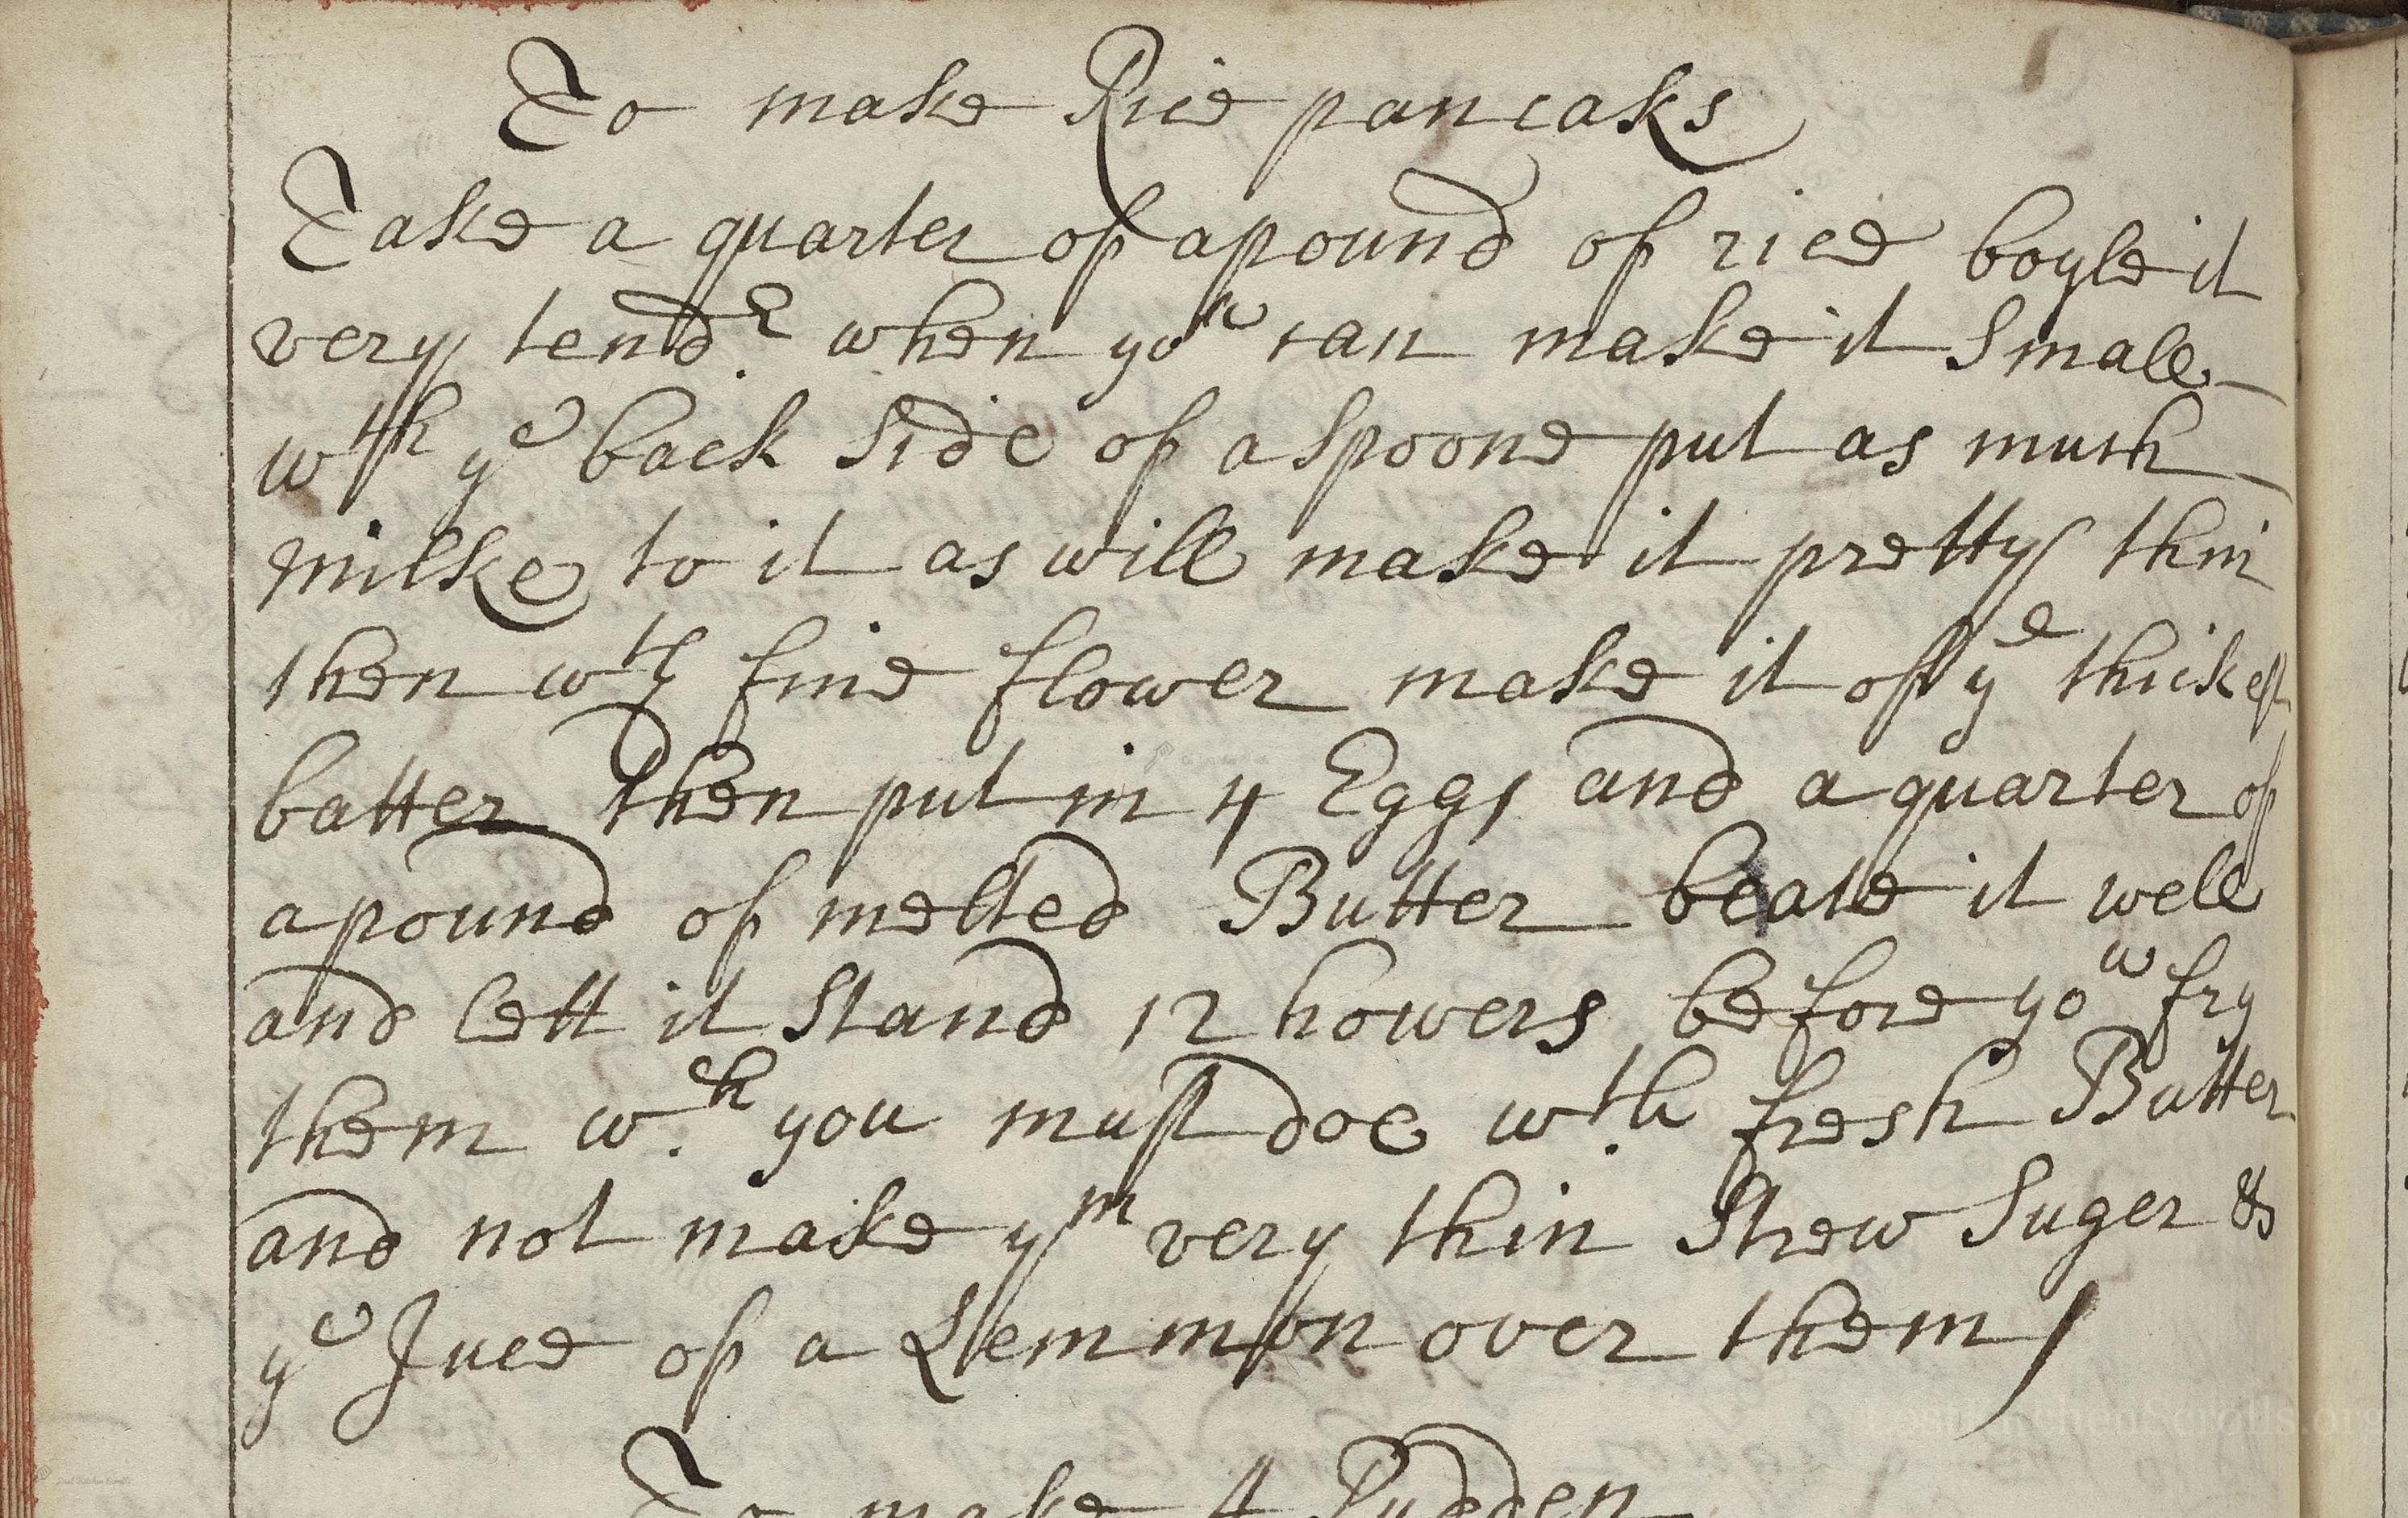 To make Rice pancaks
Take a quarter of a pound of rice boyle it
very tendr when you can make it Small
wth ye back side of a Spoone put as much
milke to it as will make it pretty thin
then wth fine flower make it of ye thickest
batter then put in 4 Eggs and a quarter of
a pound of melted Butter beate it well
and lett it Stand 12 howers before you fry
them wch you must doe wth fresh Butter
and not make ym very thin Strew Suger &
ye Juce of a Lemmon over them
To make A Pudden